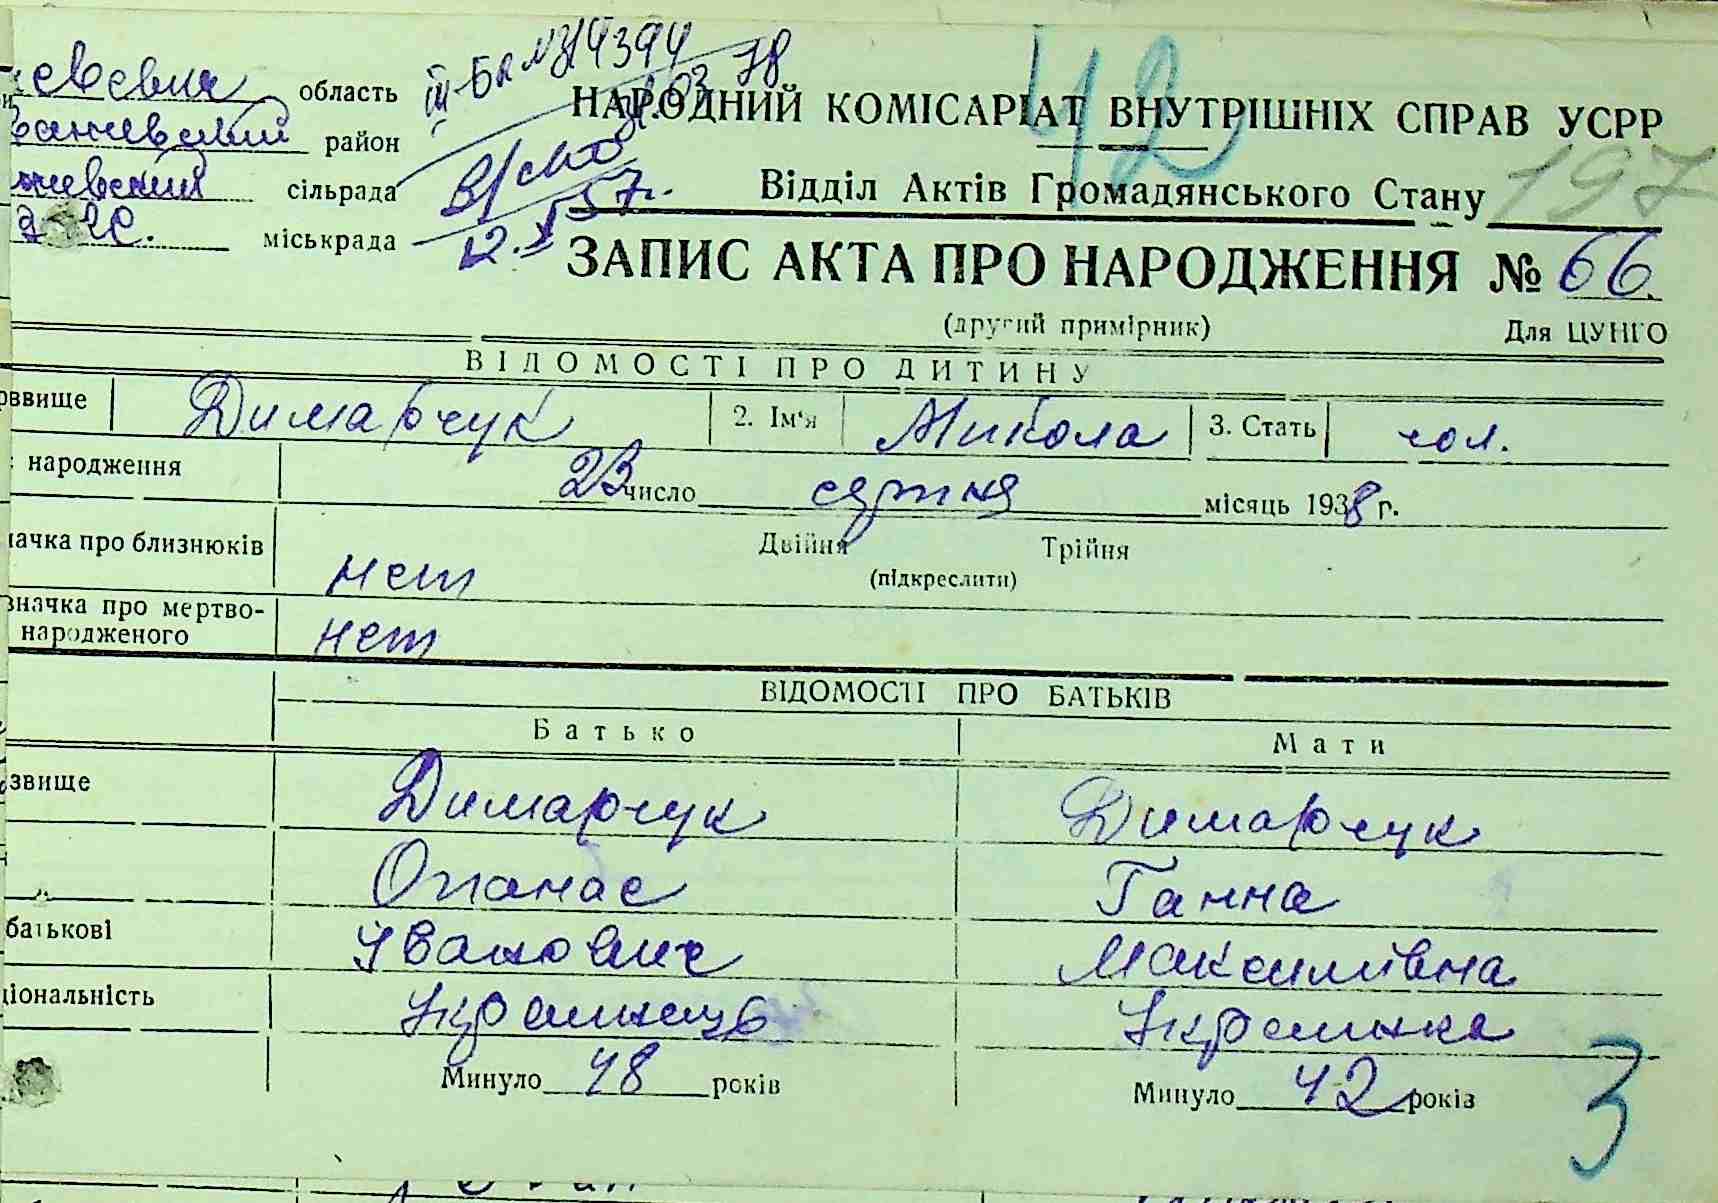 область
район
сільрада
міськрада
III-БК №314394
78
57г.
42
НАРОДНИЙ КОМІСАРІАТ ВНУТРІШНІХ СПРАВ УСРР
197
Відділ Актів Громадянського Стану
ЗАПИС АКТА ПРО НАРОДЖЕННЯ № 66.
(другий примірник) Для ЦУНГО
ВІДОМОСТІ ПРО ДИТИНУ
ввище Димарчук 2. Ім'я Микола 3. Стать чол.
народження 23 число серпня місяць 1938 г.
ачка про близнюків нет Двійня Трійня
(підкреслити)
значка про мертво-
народженого нет
ВІДОМОСТІ ПРО БАТЬКІВ
Батько Мати
звище Димарчук Димарчук
Опанас Ганна
батькові Іванович Максимівна
ціональність Українець Українка
Минуло 48 років Минуло 42 років
3